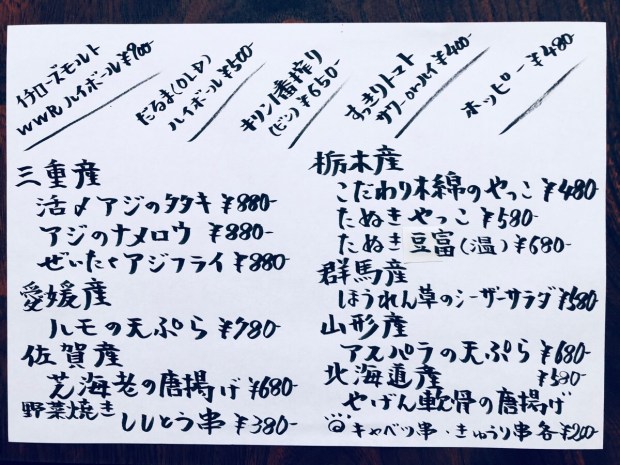 イチローズモルト
WWR ハイボール ¥900-
だるま(OLD)
ハイボール ¥500
キリン1番搾り
(ビン) ¥650-
すっきりトマト
サワーorハイ ¥400-
ホッピー ¥480-
三重産
活〆アジのタタキ ¥880-
アジのナメロウ ¥880-
ぜいたくアジフライ ¥880
愛媛産
ハモの天ぷら ¥780-
佐賀産
芝海老の唐揚げ ¥680-
野菜焼き ししとう串 ¥380-
栃木産
こだわり木綿のやっこ ¥480
たぬきやっこ ¥580-
たぬき豆富(温) ¥680-
群馬産
ほうれん草のシーザーサラダ ¥580
山形産
アスパラの天ぷら ¥680-
北海道産 ¥580-
やげん軟骨の唐揚げ
キャベツ串・きゅうり串 各¥200